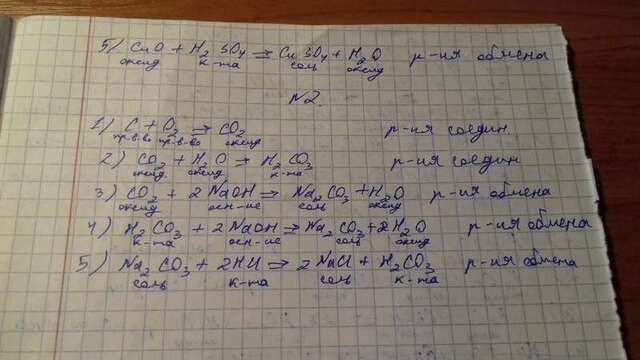 5) CuO + H2SO4 = CuSO4 + H2O р-ия обмена
оксид к-та соль оксид
№2.
1) C + O2 = CO2 р-ия соедин.
пр.в-во пр.в-во оксид
2) CO2 + H2O → H2CO3 р-ия соедин
оксид оксид к-та
3) CO2 + 2NaOH = Na2CO3 + H2O р-ия обмена
оксид осн-ие соль оксид
4) H2CO3 + 2NaOH = Na2CO3 + 2H2O р-ия обмена
к-та осн-ие соль оксид
5) Na2CO3 + 2HCl = 2NaCl + H2CO3 р-ия обмена
соль к-та соль к-та